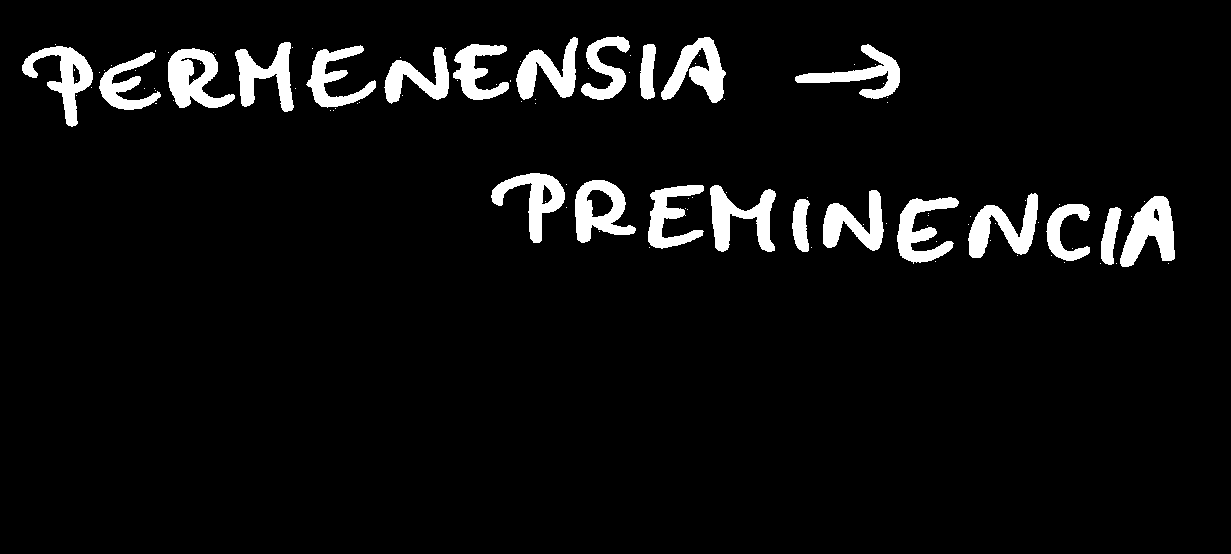 PERMENENSIA →
PREMINENCIA